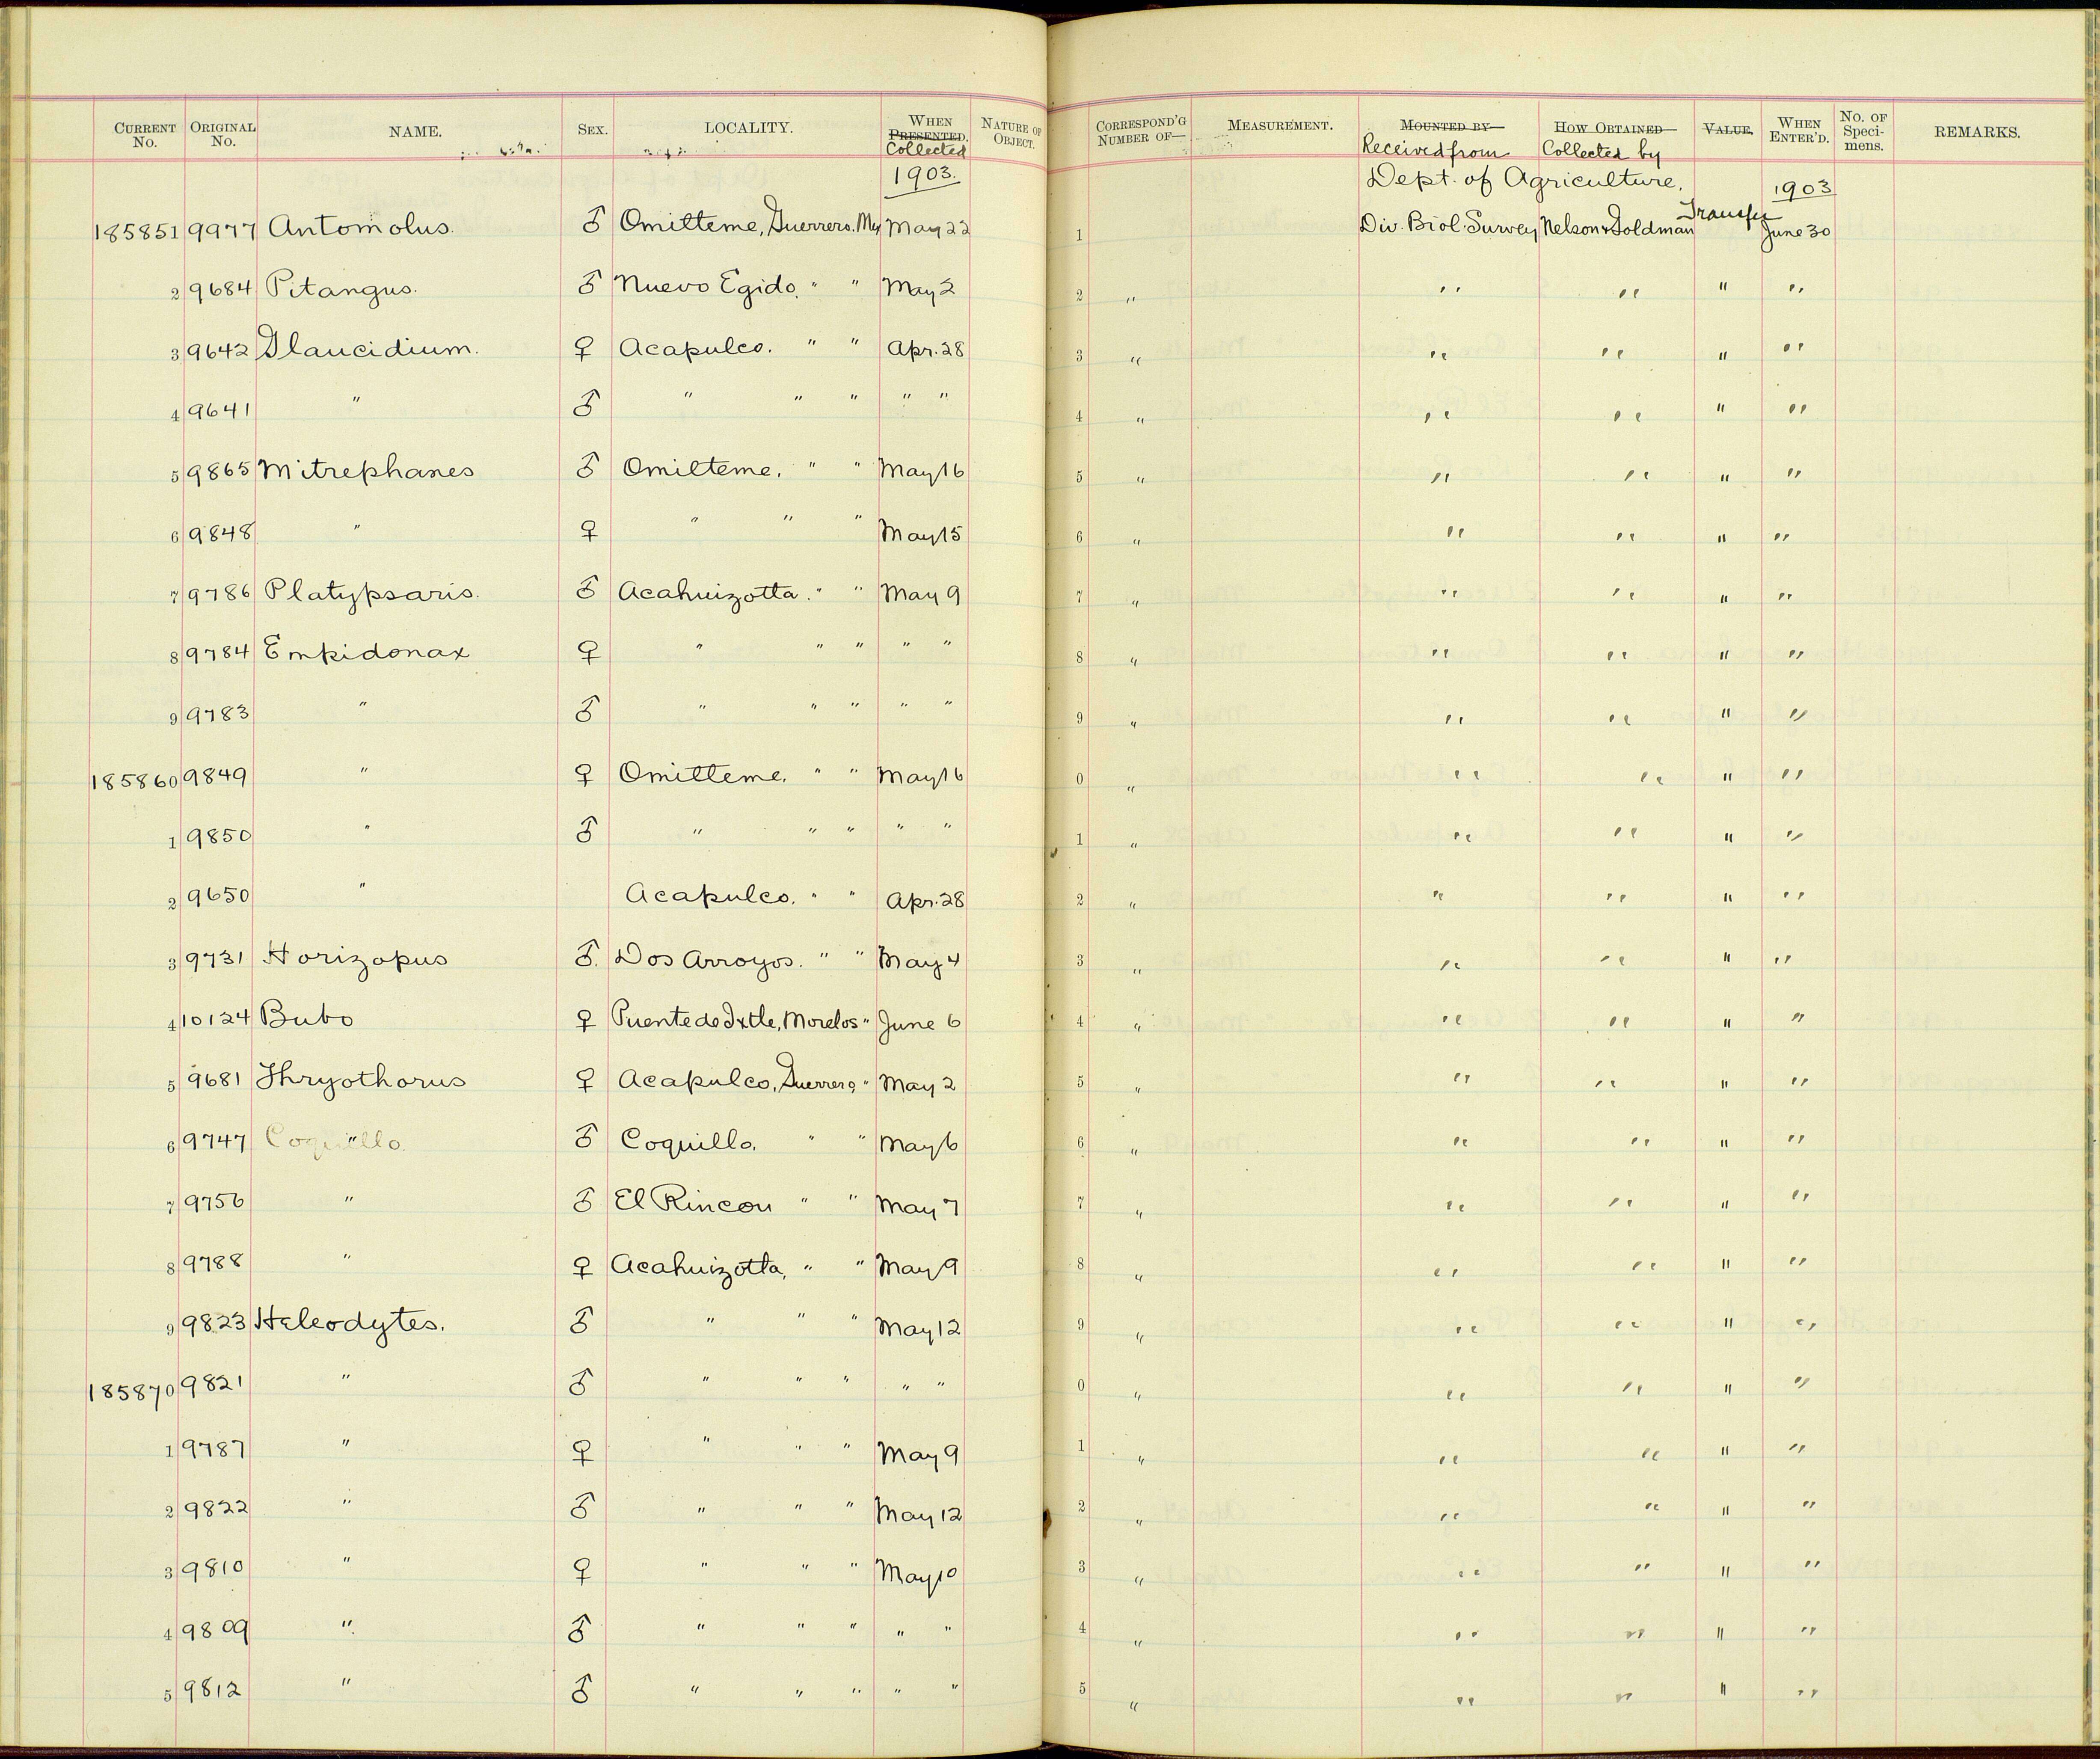 CURRENT No. ORIGINAL No. NAME. SEX. LOCALITY. WHEN PRESENTED. Collected NATURE OF OBJECT. CORRESPOND'G NUMBER OF— MEASUREMENT. MOUNTED BY— Received from HOW OBTAINED— Collected by VALUE. WHEN ENTER'D. No. OF Speci-mens. REMARKS.
1903. Dept. of Agriculture. 1903
185851 9977 Antomolus. ♂ Omilteme, Guerrero. Mex May 22 1 Div. Biol. Survey Nelson & Goldman Transfer June 30
2 9684 Pitangus. ♂ Nuevo Egido. " " May 2 2 " " " " "
3 9642 Glaucidium. ♀ Acapulco. " " Apr. 28 3 " " " " "
4 9641 " ♂ " " " " " 4 " " " " "
5 9865 Mitrephanes ♂ Omilteme. " " May 16 5 " " " " "
6 9848 " ♀ " " " May 15 6 " " " " "
7 9786 Platypsaris. ♂ Acahuizotta. " " May 9 7 " " " " "
8 9784 Empidonax ♀ " " " " " 8 " " " " "
9 9783 " ♂ " " " " " 9 " " " " "
185860 9849 " ♀ Omilteme. " " May 16 0 " " " " "
1 9850 " ♂ " " " " " 1 " " " " "
2 9650 " Acapulco. " " Apr. 28 2 " " " " "
3 9731 Horizopus ♂. Dos Arroyos. " " May 4 3 " " " " "
4 10124 Bubo ♀ Puente de Ixtle, Morelos " June 6 4 " " " " "
5 9681 Thryothorus ♀ Acapulco, Guerrero " May 2 5 " " " " "
6 9747 Coquillo " ♂ Coquillo. " " May 6 6 " " " " "
7 9756 " ♂ El Rincon " " May 7 7 " " " " "
8 9788 " ♀ Acahuizotta, " " May 9 8 " " " " "
9 9823 Heleodytes. ♂ " " " May 12 9 " " " " "
185870 9821 " ♂ " " " " " 0 " " " " "
1 9787 " ♀ " " " May 9 1 " " " " "
2 9822 " ♂ " " " May 12 2 " " " " "
3 9810 " ♀ " " " May 10 3 " " " " "
4 9809 " ♂ " " " " " 4 " " " " "
5 9812 " ♂ " " " " " 5 " " " " "